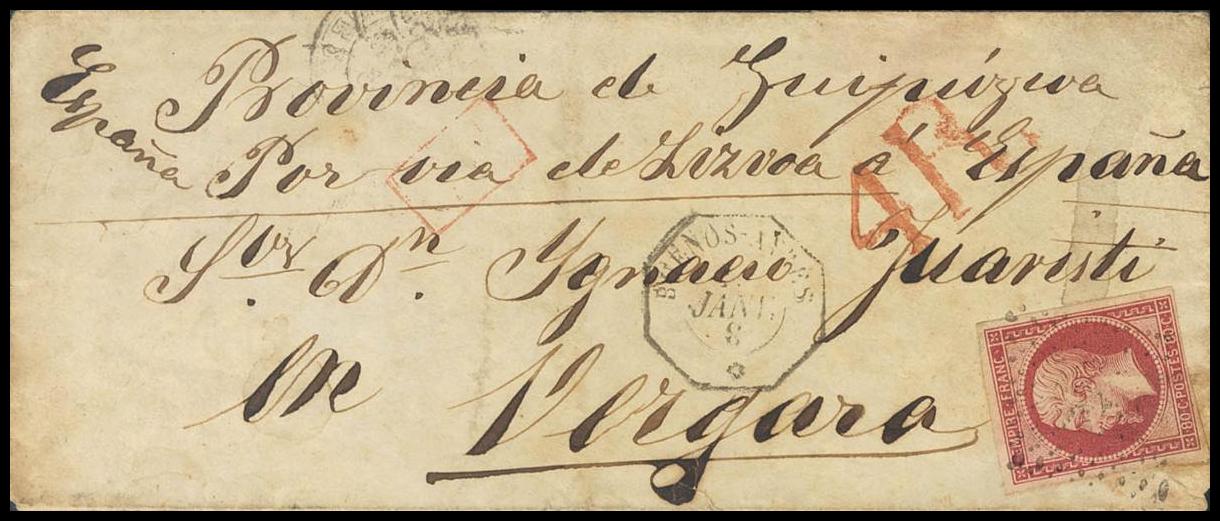 España
Provincia de Guipúzcoa
Por via de Lizvoa a España
4 R
Sor. Dn. Ygnacio Juaristi
BUENOS-AYRES
JANV.
8
en Vergara
EMPIRE FRANC.
80 C. POSTES 80 C.